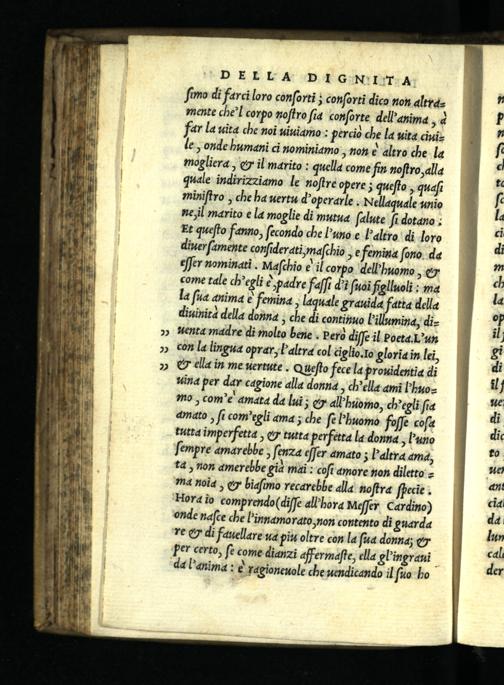 DELLA DIGNITA
simo di farci loro consorti; consorti dico non altra-
mente che'l corpo nostro sia consorte dell'anima, à
far la uita che noi uiuiamo: perciò che la uita ciui-
le, onde humani ci nominiamo, non è altro che la
mogliera, & il marito: quella come fin nostro, alla
quale indirizziamo le nostre opere; questo, quasi
ministro, che ha uertu d'operarle. Nellaquale unio
ne, il marito e la moglie di mutua salute si dotano:
Et questo fanno, secondo che l'uno e l'altro di loro
diuersamente considerati, maschio, e femina sono da
esser nominati. Maschio è il corpo dell'huomo, &
come tale ch'egli è, padre fassi d'i suoi figliuoli: ma
la sua anima è femina, laquale grauida fatta della
diuinità della donna, che di continuo l'illumina, di-
„ uenta madre di molto bene. Però disse il Poeta. L'un
„ con la lingua oprar, l'altra col ciglio. Io gloria in lei,
„ & ella in me uertute. Questo fece la prouidentia di
uina per dar cagione alla donna, ch'ella ami l'huo-
mo, com'è amata da lui; & all'huomo, ch'egli sia
amato, si com'egli ama; che se l'huomo fosse cosa
tutta imperfetta, & tutta perfetta la donna, l'uno
sempre amarebbe, senza esser amato; l'altra ama,
ta, non amerebbe già mai: cosi amore non diletto-
ma noia, & biasimo recarebbe alla nostra specie.
Hora io comprendo (disse all'hora Messer Cardino)
onde nasce che l'innamorato, non contento di guarda
re & di fauellare ua piu oltre con la sua donna; &
per certo, se come dianzi affermaste, ella gl'ingraui
da l'anima: è ragioneuole che uendicando il suo ho